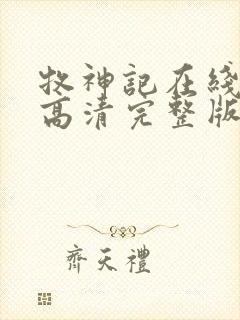 牧神記在綫
高清完整版
齊天禮